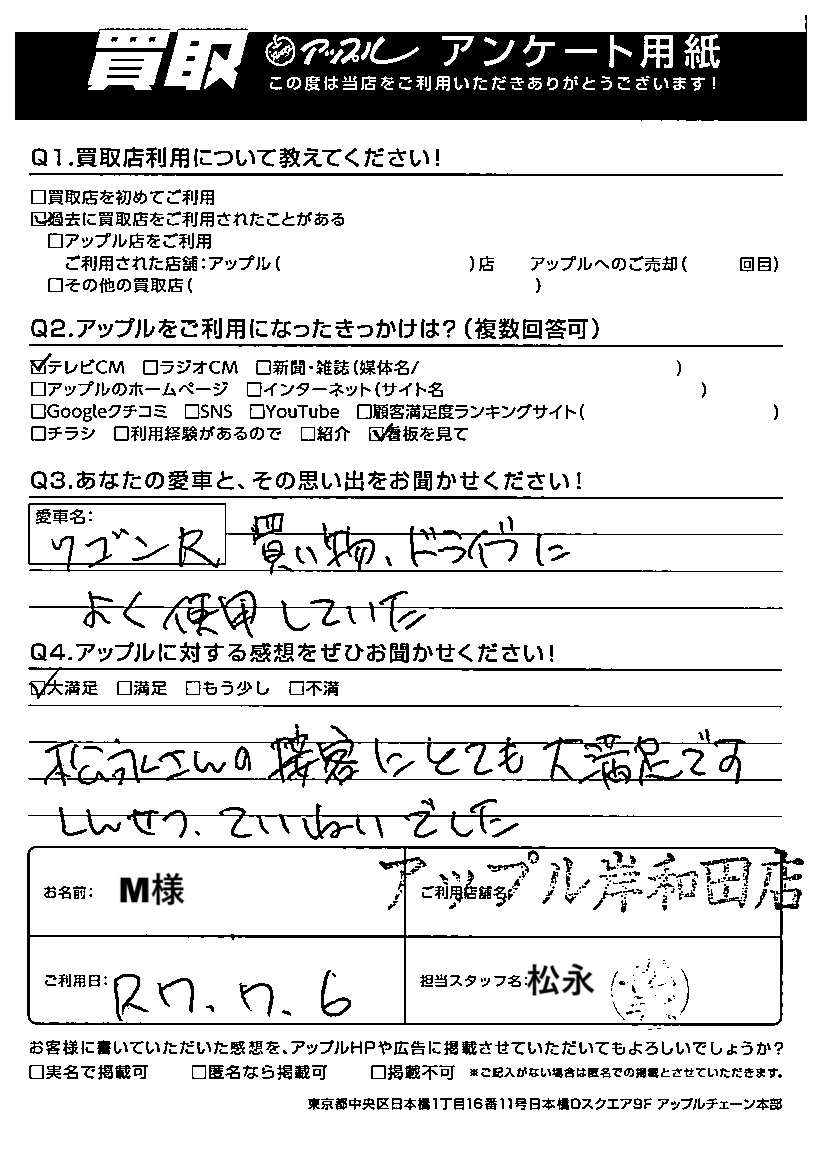 買取 アップル アンケート用紙
この度は当店をご利用いただきありがとうございます!
Q1.買取店利用について教えてください!
□買取店を初めてご利用
☑過去に買取店をご利用されたことがある
□アップル店をご利用
ご利用された店舗:アップル( )店 アップルへのご売却( 回目)
□その他の買取店( )
Q2.アップルをご利用になったきっかけは?(複数回答可)
☑テレビCM □ラジオCM □新聞・雑誌(媒体名/ )
□アップルのホームページ □インターネット(サイト名 )
□Googleクチコミ □SNS □YouTube □顧客満足度ランキングサイト( )
□チラシ □利用経験があるので □紹介 ☑看板を見て
Q3.あなたの愛車と、その思い出をお聞かせください!
愛車名:
ワゴンR 買い物、ドライブに
よく使用していた
Q4.アップルに対する感想をぜひお聞かせください!
☑大満足 □満足 □もう少し □不満
松永さんの接客にとても大満足です
しんせつ、ていねいでした
お名前: M様 ご利用店舗名 アップル岸和田店
ご利用日: R7.7.6 担当スタッフ名:松永
お客様に書いていただいた感想を、アップルHPや広告に掲載させていただいてもよろしいでしょうか?
□実名で掲載可 □匿名なら掲載可 □掲載不可 ※ご記入がない場合は匿名での掲載とさせていただきます。
東京都中央区日本橋1丁目16番11号日本橋Dスクエア9F アップルチェーン本部